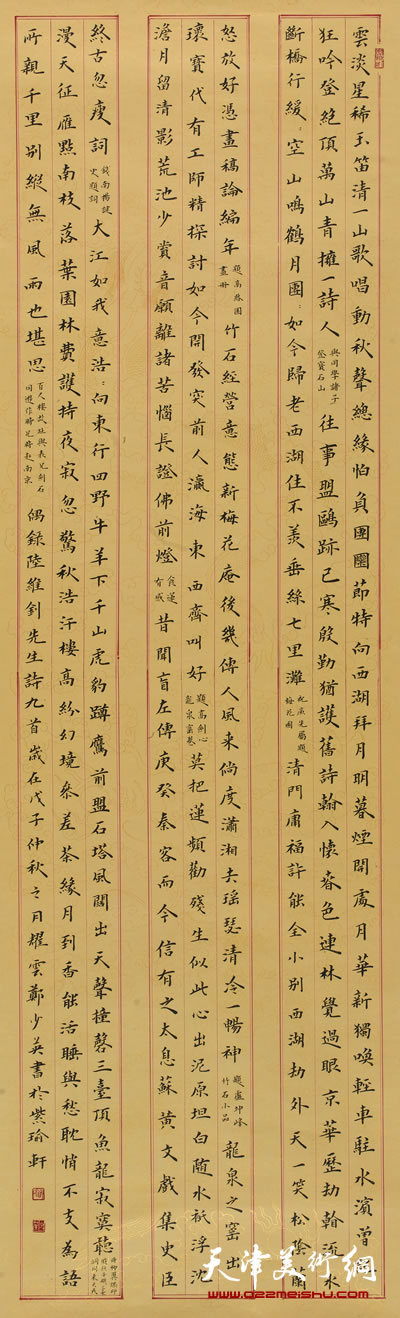 雲淡星稀玉笛清一山歌唱動秋聲總緣怕負團圞節特向西湖拜月明暮煙開處月華新獨喚輕車駐水濱曾
狂吟登絕頂萬山青擁一詩人與同學諸子登寶石山往事盟鷗跡已寒殷勤猶護舊詩翰入懷春色連林覺過眼京華歷劫翰流水
斷橋行緩:空山鳴鶴月團:如今歸老西湖住不羨垂絲七里灘屬題梅花圖清門庸福許能全小別西湖劫外天一笑松陰蘭
怒放好憑畫稿論編年竹石經營意態新梅花庵後幾傳人風來倘度瀟湘去瑤瑟清泠一暢神題盧坤峰竹石小品龍泉之窯出
瓌寶代有工師精探討如今開發突前人瀛海東西齊叫好題高劍心龍泉窯卷莫把蓮頻勸殘生似此心出泥原坦白隨水祇浮沈
澹月留清影荒池少賞音願離諸苦惱長證佛前燈食蓮有感昔聞盲左傳庚癸秦客而今信有之太息蘇黃文戲集史臣
終古忽瘦詞錢南揚謎史題詞大江如我意浩:向東行四野牛羊下千山虎豹蹲鷹前盟石塔風闊出天聲撞磬三臺頂魚龍寂寞聽
漫天征雁點南枝落葉園林費護持夜寂忽驚秋浩汗樓高紛幻境參差茶緣月到香能活睡與愁耽悄不支為語
所親千里別縱無風雨也堪思偶錄陸維釗先生詩九首歲在戊子仲秋之月耀雲鄭少英書於紫瑜軒
天津美術網
www.022meishu.com